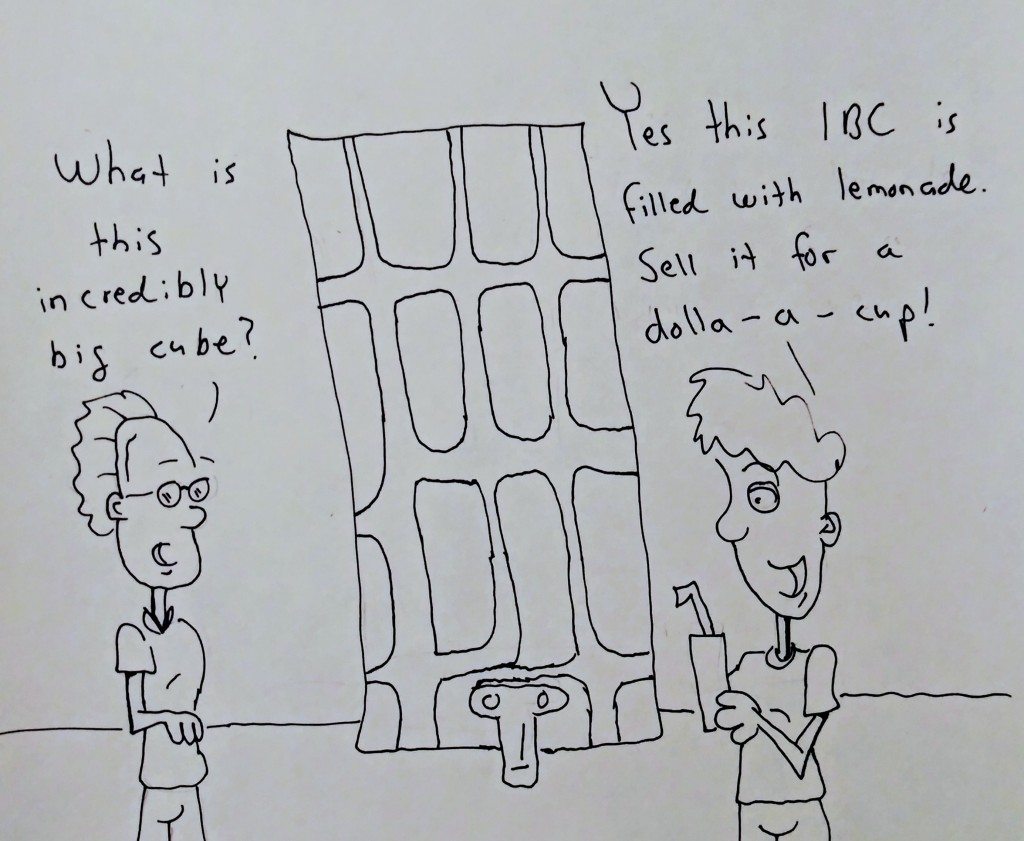 What is
this
incredibly
big cube?
Yes this IBC is
filled with lemonade.
Sell it for a
dolla-a-cup!